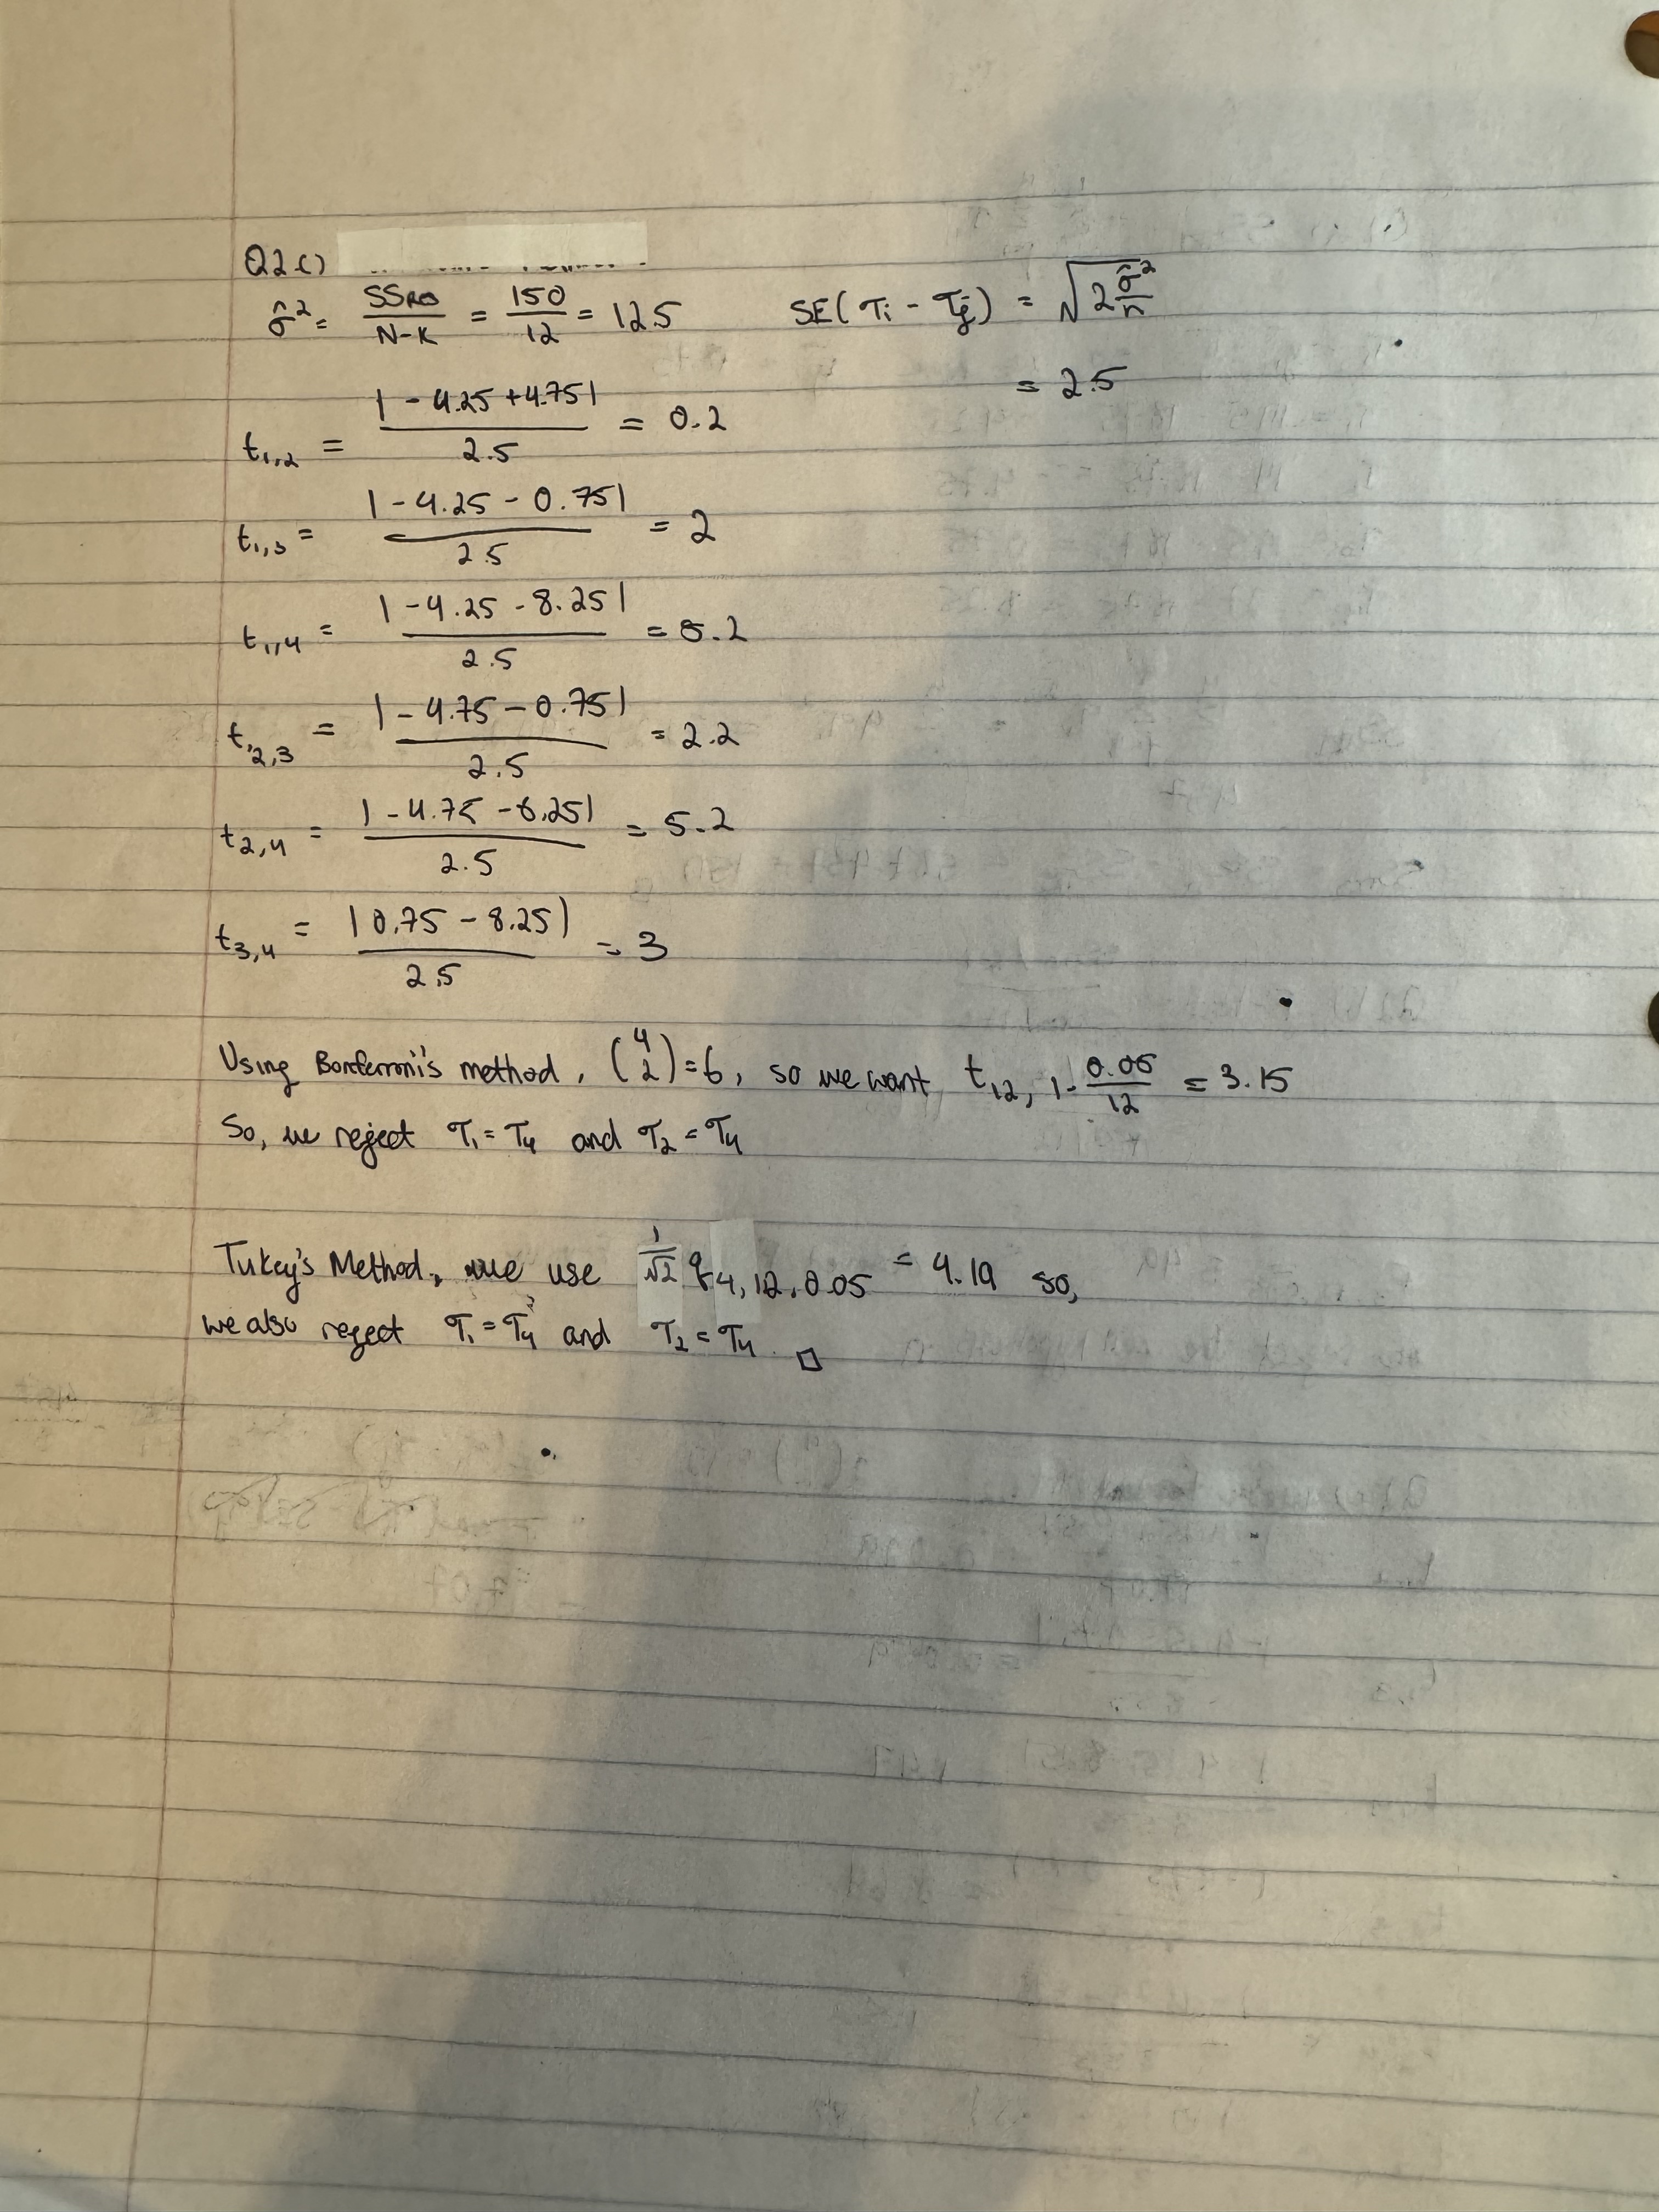 Q2 c)
σ̂² = SSRes / N-K = 150 / 12 = 12.5    SE(τi - τj) = √(2 σ̂² / n)
= 2.5
t1,2 = |-4.25 + 4.75| / 2.5 = 0.2
t1,3 = |-4.25 - 0.75| / 2.5 = 2
t1,4 = |-4.25 - 8.25| / 2.5 = 5.2
t2,3 = |-4.75 - 0.75| / 2.5 = 2.2
t2,4 = |-4.75 - 8.25| / 2.5 = 5.2
t3,4 = |0.75 - 8.25| / 2.5 = 3
Using Bonferroni's method, (4 2) = 6, so we want t12, 1 - 0.05/12 = 3.15
So, we reject τ1 = τ4 and τ2 = τ4
Tukey's Method, we use 1/√2 q4, 12, 0.05 = 4.19 so,
we also reject τ1 = τ4 and τ2 = τ4. □